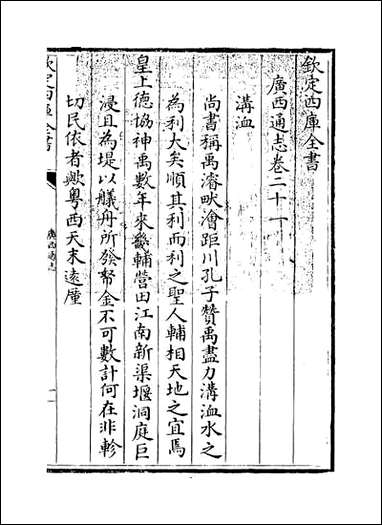 欽定四庫全書
廣西通志卷二十一
溝洫
尚書稱禹濬畎澮距川孔子贊禹盡力溝洫水之
為利大矣順其利而利之聖人輔相天地之宜焉
皇上德協神禹數年來畿輔營田江南新渠堰洞庭巨
浸且為堤以艤舟所發帑金不可數計何在非軫
切民依者歟粤西天末逺廑
欽定四庫全書
廣西通志
一